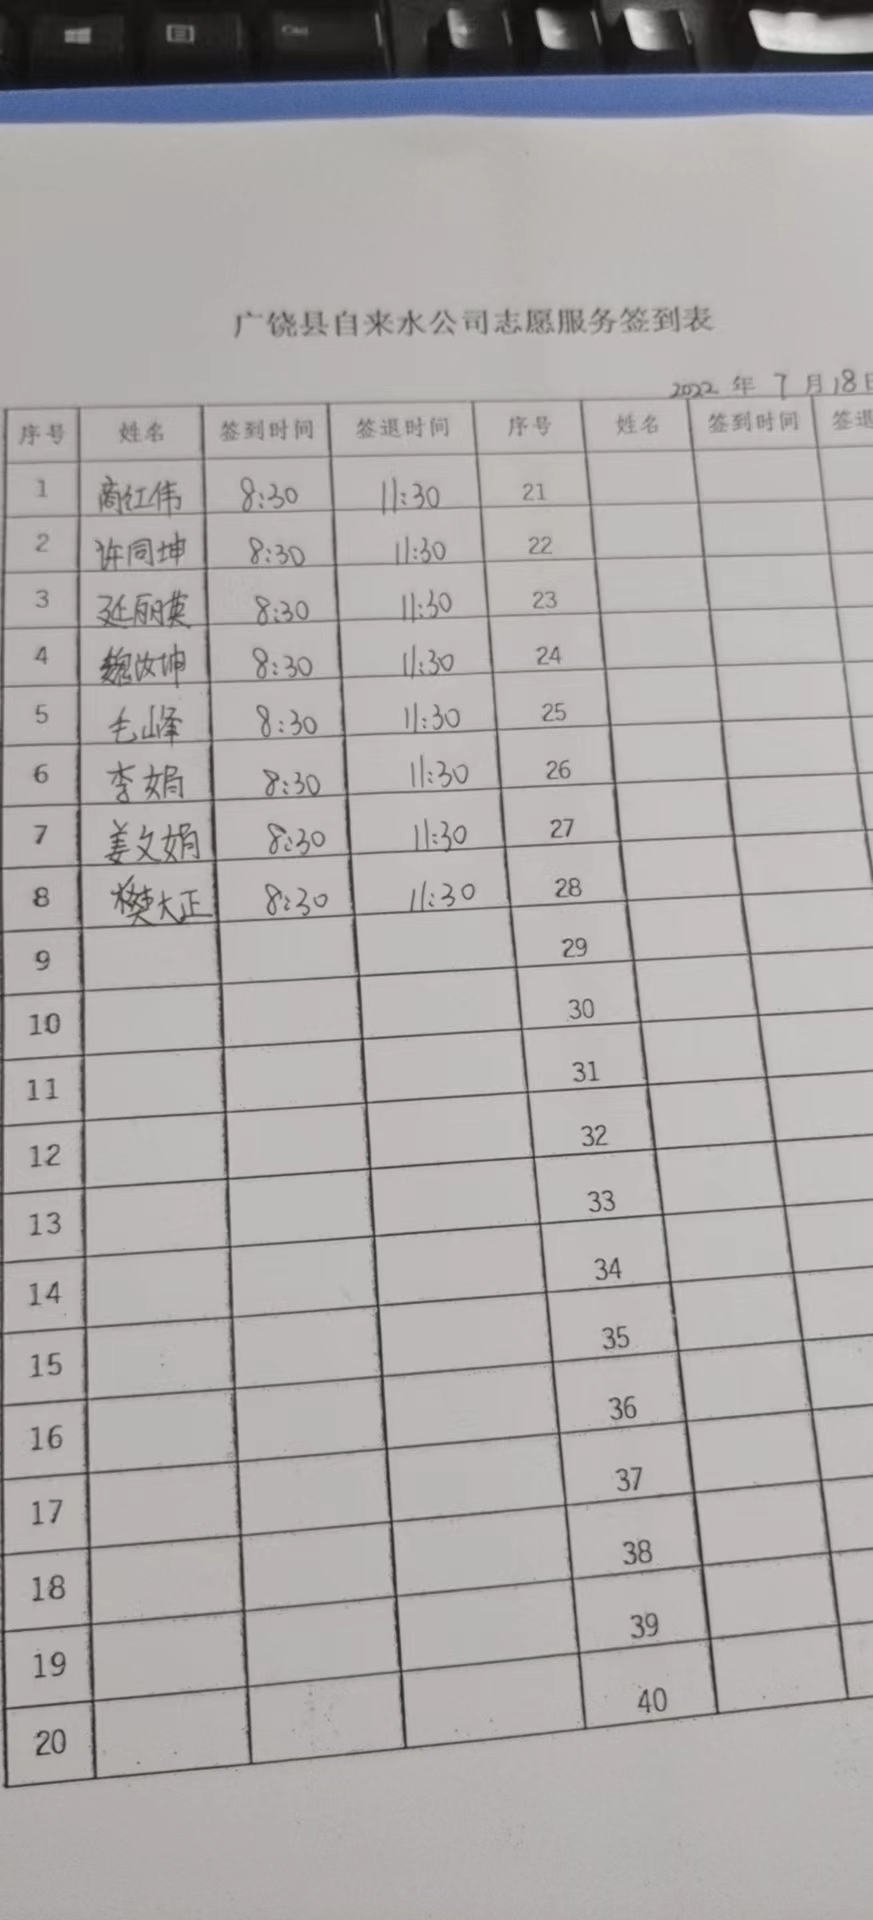 广饶县自来水公司志愿服务签到表
2022 年 7 月 18 日
序号 姓名 签到时间 签退时间 序号 姓名 签到时间 签退
1 商红伟 8:30 11:30 21
2 许同坤 8:30 11:30 22
3 延丽英 8:30 11:30 23
4 魏汝坤 8:30 11:30 24
5 毛山峰 8:30 11:30 25
6 李娟 8:30 11:30 26
7 姜文娟 8:30 11:30 27
8 樊大正 8:30 11:30 28
9 29
10 30
11 31
12 32
13 33
14 34
15 35
16 36
17 37
18 38
19 39
20 40